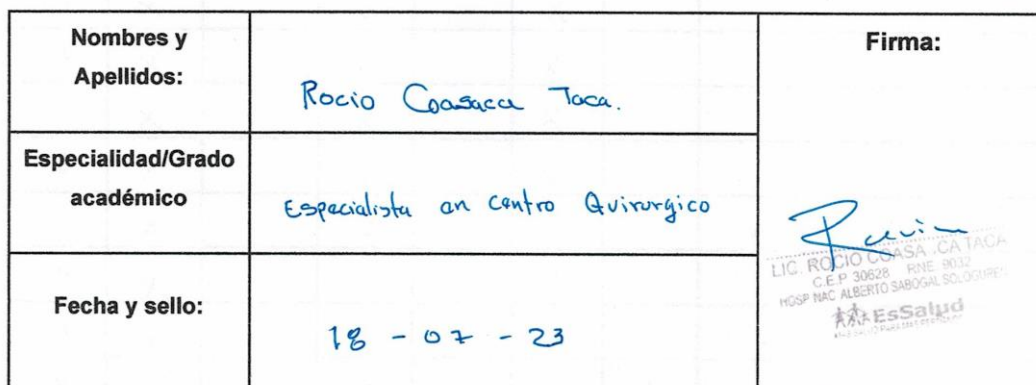 Nombres y
Apellidos:
Rocio Coasaca Taca.
Firma:
Especialidad/Grado
académico
Especialista en centro Quirurgico
LIC. ROCIO COASA CA TACA
C.E.P 30628 RNE. 9032
HOSP NAC ALBERTO SABOGAL SOLOGUREN
EsSalud
Fecha y sello:
18 - 07 - 23